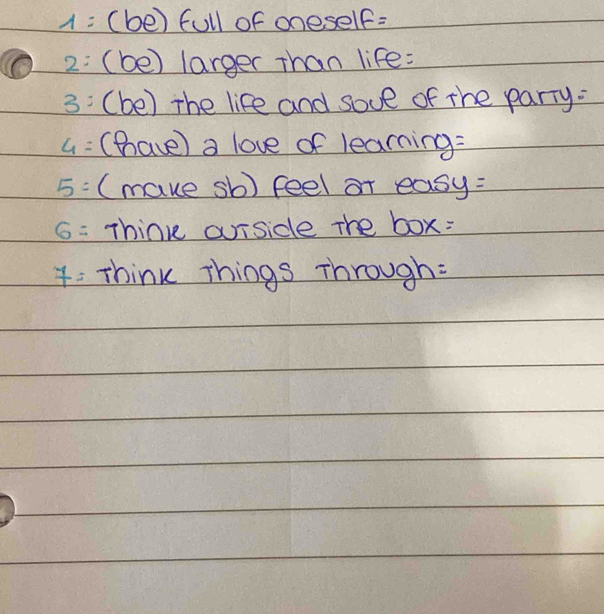 1: (be) full of oneself=
2: (be) larger than life:
3: (be) the life and soue of the party=
4= (have) a love of learning=
5= (make sb) feel at easy=
6= Think outside the box=
7= Think things through=